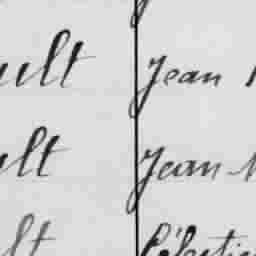 ult Jean
ult Jean
lt Célestin